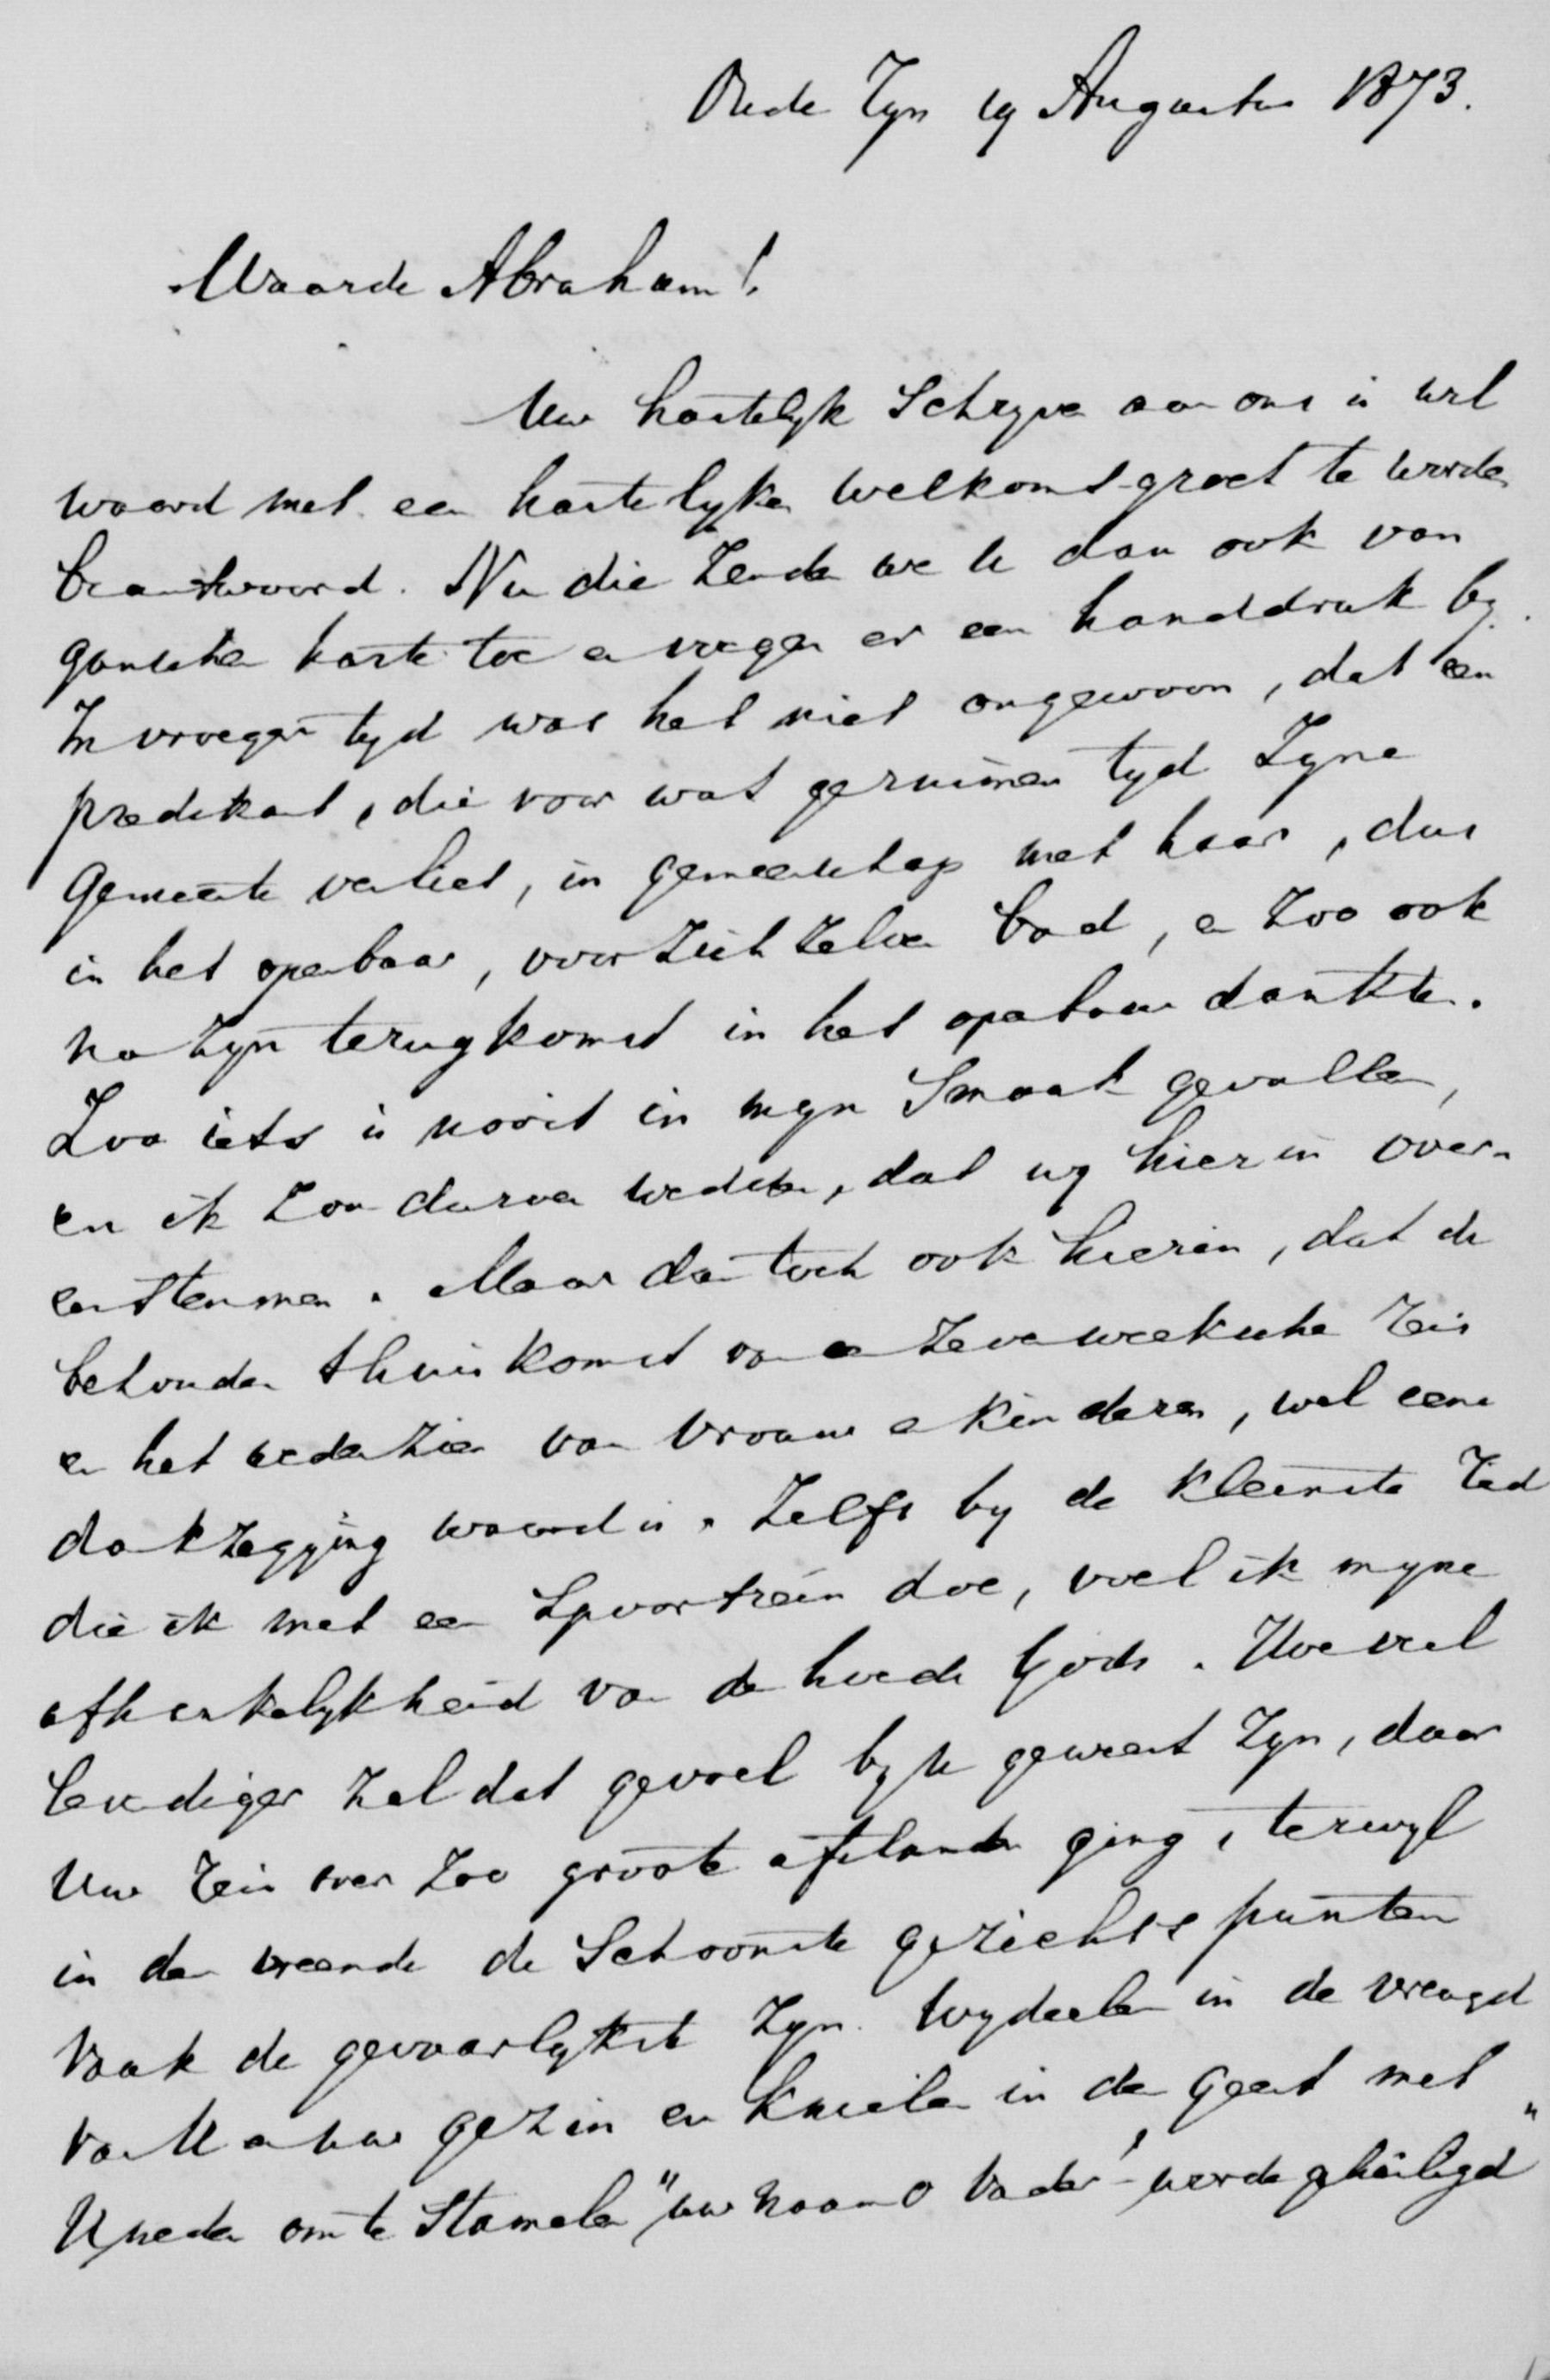 Oude Ryn 19 Augustus 1873.
Waarde Abraham!
Uw hartelyk schryven aan ons is wel
waard met een hartelyken welkomstgroet te worden
beantwoord. Nu die zenden we U dan ook van
ganscher harte toe en voegen er een handdruk by.
In vroeger tyd was het niet ongewoon, dat een
predikant, die voor wat geruimen tyd zyne
gemeente verliet, in gemeenschap met haar, dus
in het openbaar, voor zich zelven bad, en zoo ook
na zyn terugkomst in het openbaar dankte.
Zoo iets is nooit in myn smaak gevallen,
en ik zou durven wedden, dat wy hierin over-
eenstemmen. Maar dan toch ook hierin, dat de
behouden thuiskomst van een zevenweeksche reis
en het wederzien van vrouw en kinderen, wel eene
dankzegging waard is. Zelfs by de kleinste rid
die ik met een spoortrein doe, voel ik myne
afhankelykheid van de hoede Gods. Hoeveel
levendiger zal dat gevoel by U geweest zyn, daar
Uw reis over zoo groote afstanden ging, terwyl
in den vreemde de schoonste gezichtspunten
vaak de gevaarlykste zyn. Wy deelen in de vreugd
van U en uw gezin en knielen in den geest met
U neder om te stamelen "uw naam o Vader! - worde geheiligd"